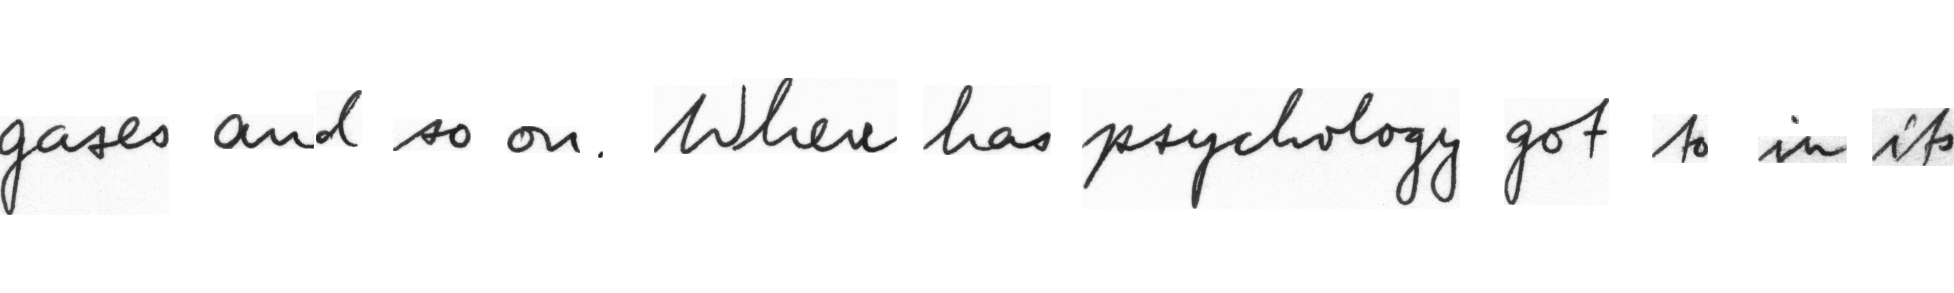 gases and so on. Where has psychology got to in its